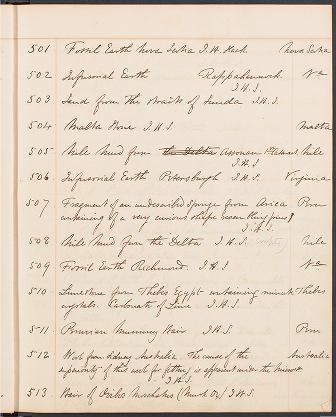 501 Fossil Earth Nova Scotia J.H. Nova Scotia
502 Infusorial Earth Rappahannock Va
J.H.S.
503 Sand from the Straits of Sunda J.H.S.
504 Malta Stone J.H.S. Malta
505 Nile Mud from the Delta Assouan 1st Cataract Nile
J.H.S.
506 Infusorial Earth Petersburgh J.H.S. Virginia
507 Fragment of an undescribed Sponge from Arica Peru
containing of a very curious shape resembling pins
J.H.S.
508 Nile Mud from the Delta J.H.S. Nile
509 Fossil Earth Richmond. J.H.S. Va
510 Limestone from Thebes Egypt containing minute Thebes
crystals. Carbonate of Lime. J.H.S.
511 Peruvian Mummy Hair J.H.S. Peru
512 Wool from Sidney Australia. The cause of the Australia
superiority of this wool for felting is apparent under the
J.H.S.
513 Hair of Ovibos Moschatus (Musk Ox) J.H.S.